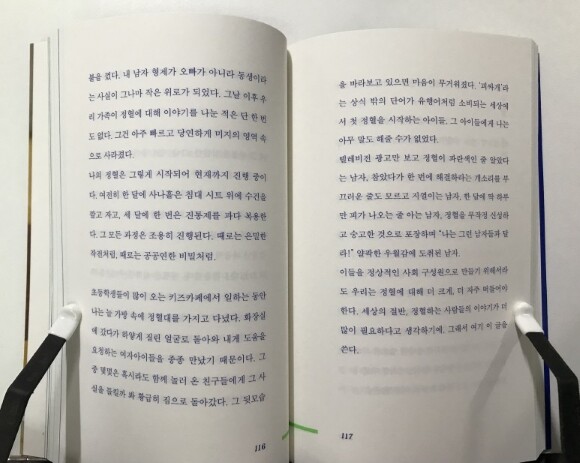 불을 껐다. 내 남자 형제가 오빠가 아니라 동생이라
는 사실이 그나마 작은 위로가 되었다. 그날 이후 우
리 가족이 정혈에 대해 이야기를 나눈 적은 단 한 번
도 없다. 그건 아주 빠르고 당연하게 미지의 영역 속
으로 사라졌다.
나의 정혈은 그렇게 시작되어 현재까지 진행 중이
다. 여전히 한 달에 사나흘은 침대 시트 위에 수건을
깔고 자고, 세 달에 한 번은 진통제를 파다 복용한
다. 그 모든 과정은 조용히 진행된다. 때로는 은밀한
작전처럼, 때로는 공공연한 비밀처럼.
초등학생들이 많이 오는 키즈카페에서 일하는 동안
나는 늘 가방 속에 정혈대를 가지고 다녔다. 화장실
에 갔다가 하얗게 질린 얼굴로 돌아와 내게 도움을
요청하는 여자아이들을 종종 만났기 때문이다. 그
중 몇몇은 혹시라도 함께 놀러 온 친구들에게 그 사
실을 들킬까 봐 황급히 집으로 돌아갔다. 그 뒷모습
116
을 바라보고 있으면 마음이 무거워졌다. '피싸개'라
는 상식 밖의 단어가 유행어처럼 소비되는 세상에
서 첫 정혈을 시작하는 아이들. 그 아이들에게 나는
아무 말도 해줄 수가 없었다.
텔레비전 광고만 보고 정혈이 파란색인 줄 알았다
는 남자, 참았다가 한 번에 해결하라는 개소리를 부
끄러운 줄도 모르고 지껄이는 남자, 한 달에 딱 하루
만 피가 나오는 줄 아는 남자, 정혈을 무작정 신성하
고 숭고한 것으로 포장하며 "나는 그런 남자들과 달
라!" 얄팍한 우월감에 도취된 남자.
이들을 정상적인 사회 구성원으로 만들기 위해서라
도 우리는 정혈에 대해 더 크게, 더 자주 떠들어야
한다. 세상의 절반, 정혈하는 사람들의 이야기가 더
많이 필요하다고 생각하기에, 그래서 여기 이 글을
쓴다.
117